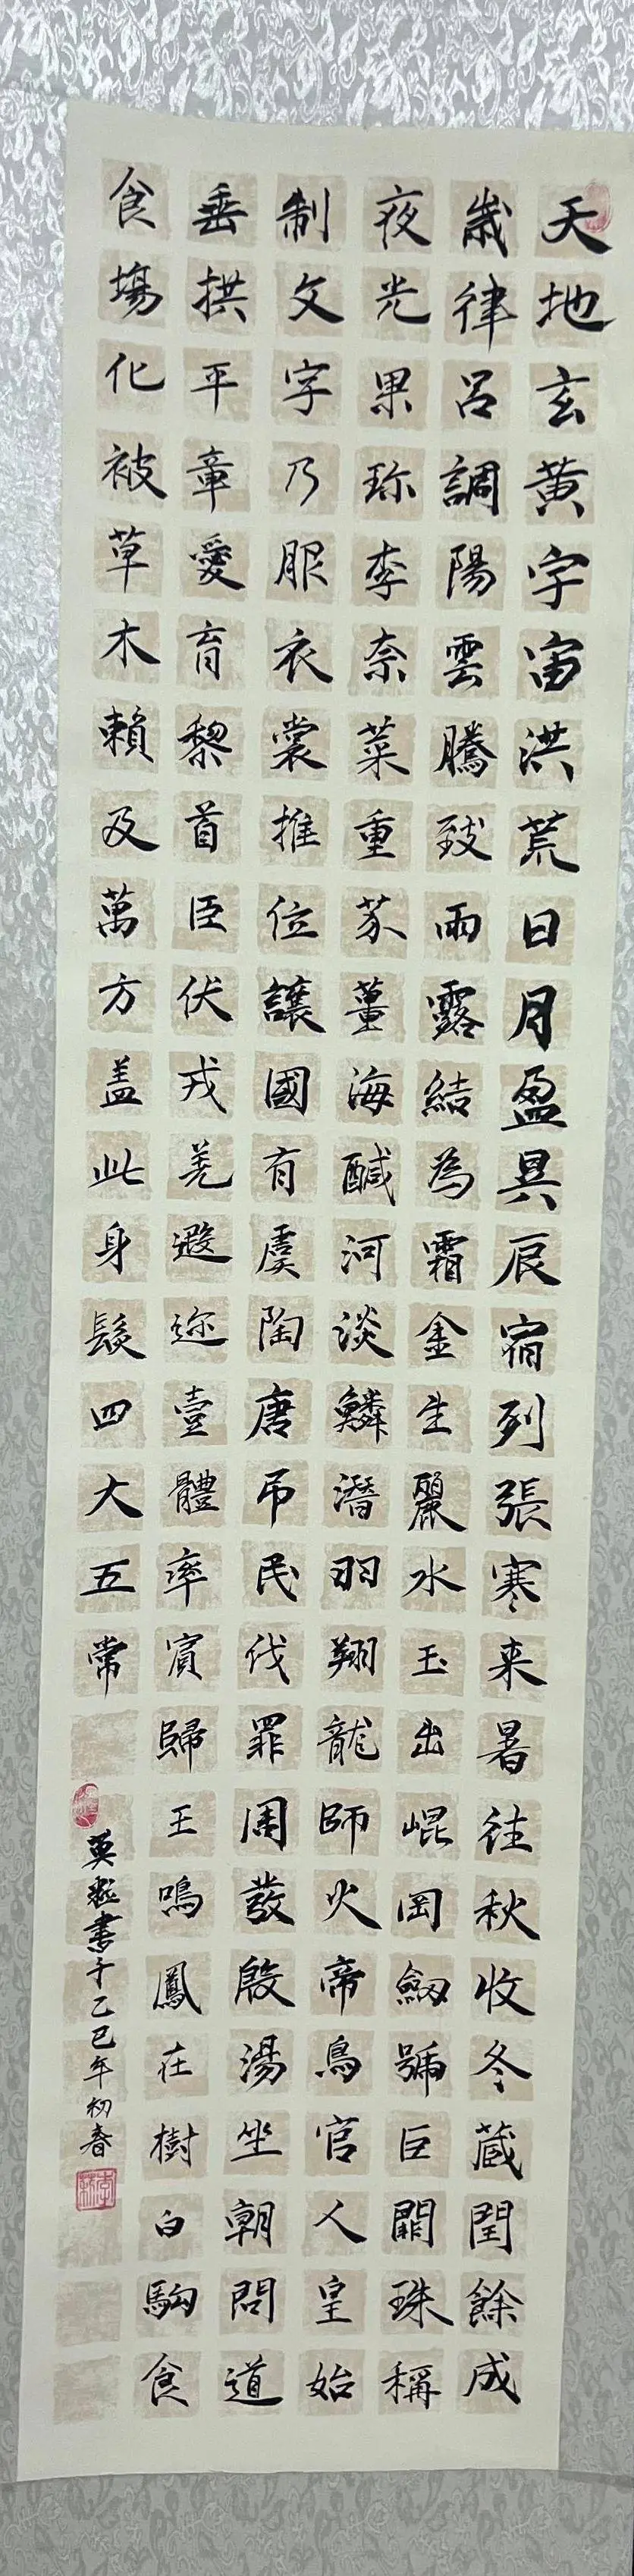 天地玄黄宇宙洪荒日月盈昃辰宿列張寒来暑往秋收冬蔵閏餘成
歲律呂調陽雲騰致雨露結為霜金生麗水玉出崐岡劒號巨闕珠稱
夜光果珎李奈菜重芥薑海鹹河淡鱗潛羽翔龍師火帝鳥官人皇始
制文字乃服衣裳推位讓國有虞陶唐吊民伐罪周發殷湯坐朝問道
垂拱平章愛育黎首臣伏戎羌遐迩壹體率賓歸王鳴鳳在樹白駒食
食場化被草木賴及萬方盖此身髮四大五常
書于乙巳年初春